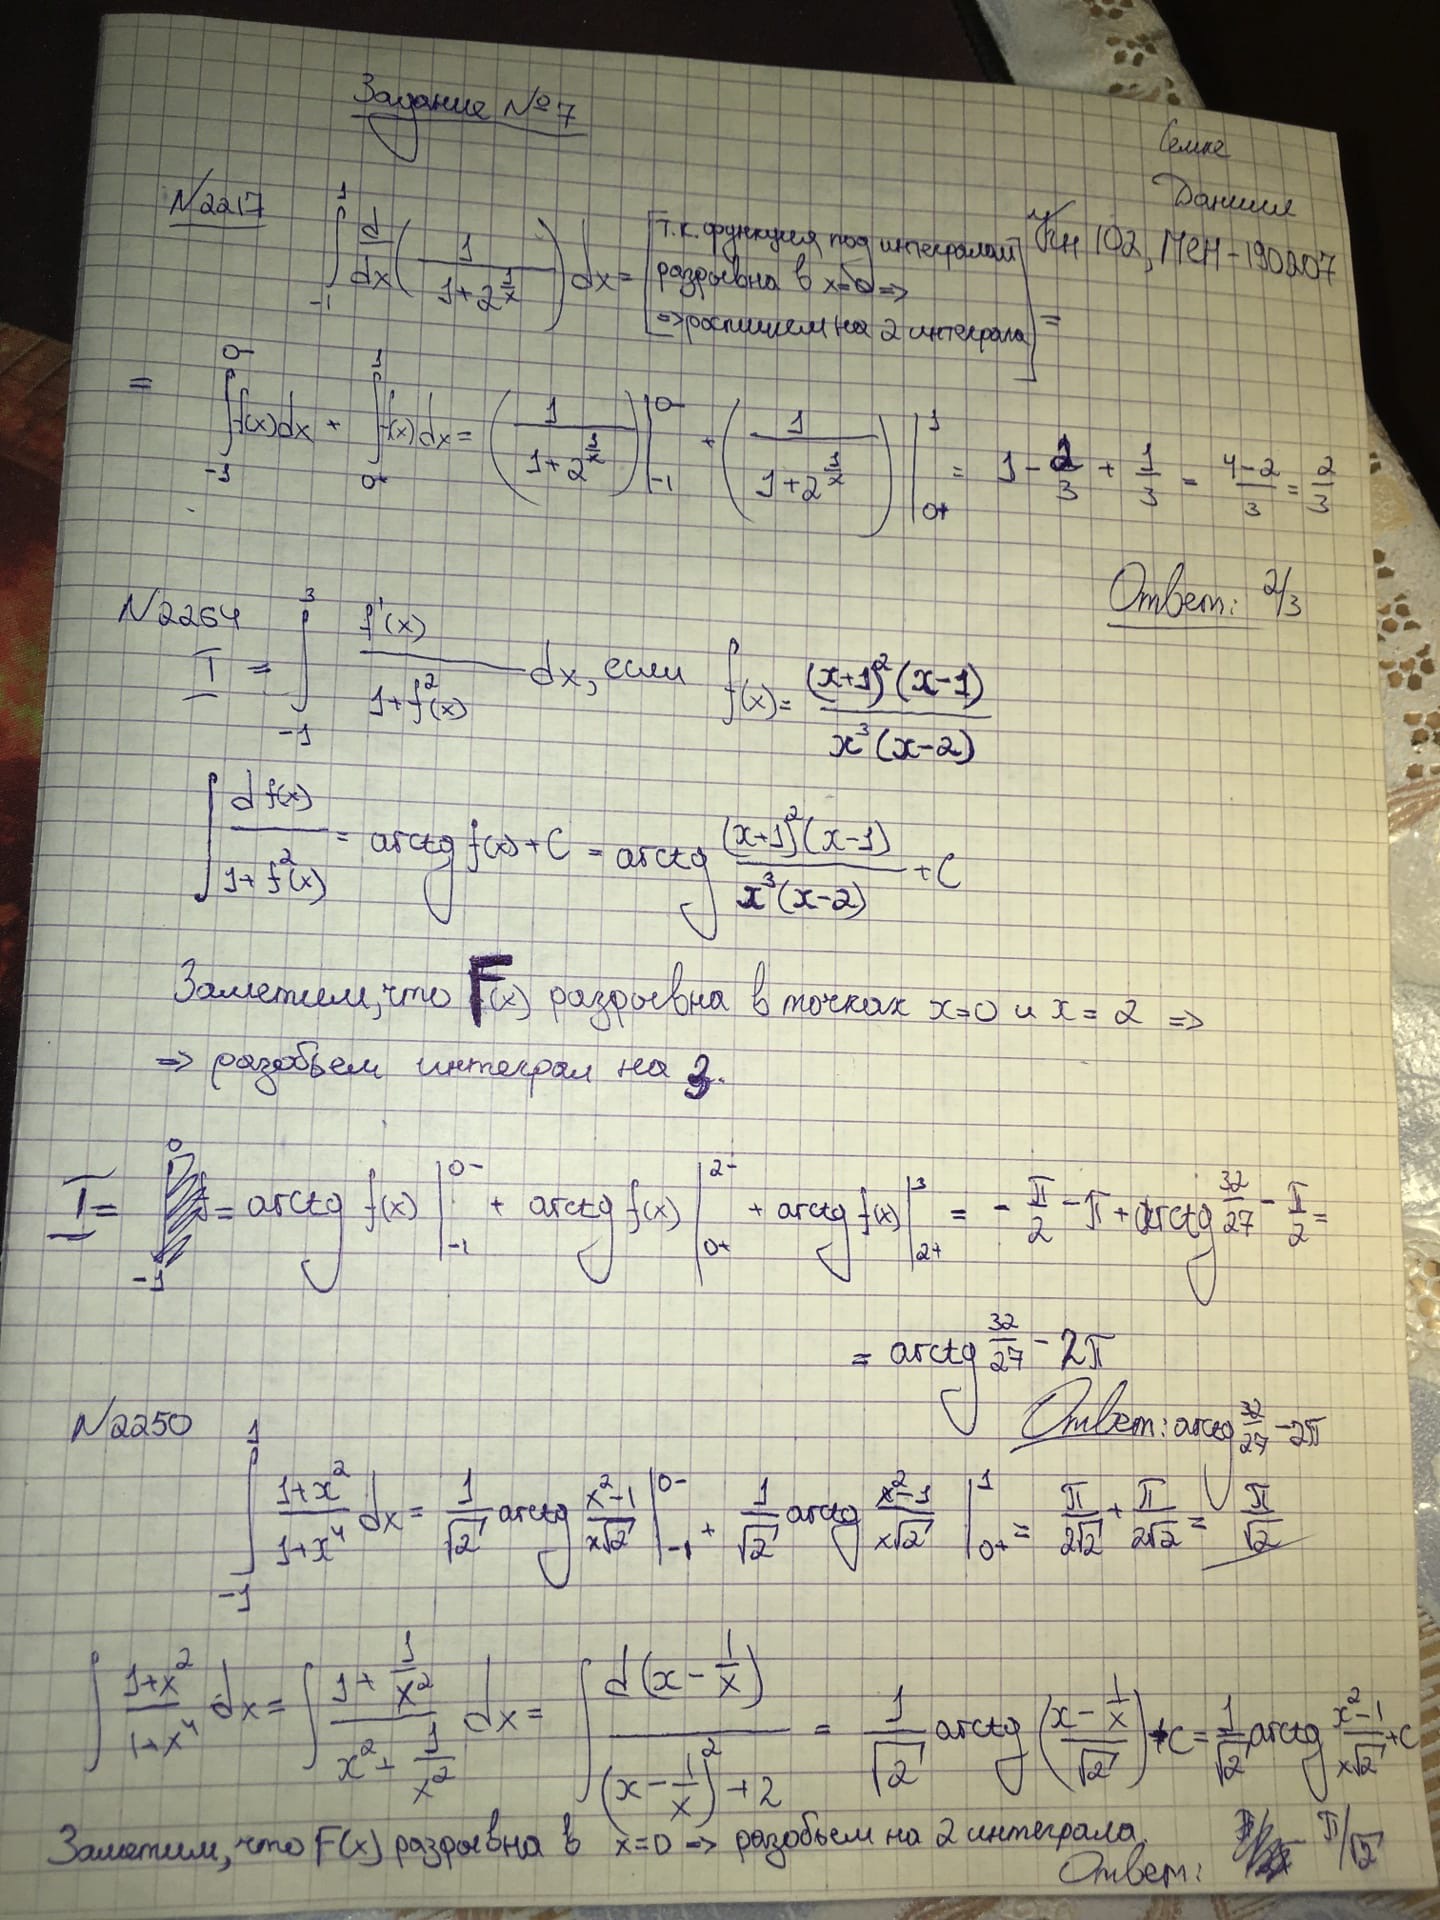 Задание №7
Семке
Даниил
КН 102, МЕН-190207
N2217 ∫_{-1}^{1} d/dx (1/(1+2^{1/x})) dx = [т.к. функция под интегралом
разрывна в x=0 =>
=> распишем на 2 интеграла] =
= ∫_{-1}^{0-} f(x)dx + ∫_{0+}^{1} f(x)dx = (1/(1+2^{1/x}))|_{-1}^{0-} + (1/(1+2^{1/x}))|_{0+}^{1} = 1 - 2/3 + 1/3 = (4-2)/3 = 2/3
Ответ: 2/3
N2264
I = ∫_{-1}^{3} f'(x)/(1+f²(x)) dx, если f(x) = (x+1)²(x-1)/(x³(x-2))
∫ df(x)/(1+f²(x)) = arctg f(x)+C = arctg (x+1)²(x-1)/(x³(x-2)) + C
Заметим, что F(x) разрывна в точках x=0 и x=2 =>
=> разобьем интеграл на 3.
I = = arctg f(x)|_{-1}^{0-} + arctg f(x)|_{0+}^{2-} + arctg f(x)|_{2+}^{3} = -π/2 - π + arctg 32/27 - π/2 =
= arctg 32/27 - 2π
Ответ: arctg 32/27 - 2π
N2250
∫_{-1}^{1} (1+x²)/(1+x⁴) dx = 1/√2 arctg (x²-1)/(x√2)|_{-1}^{0-} + 1/√2 arctg (x²-1)/(x√2)|_{0+}^{1} = π/(2√2) + π/(2√2) = π/√2
∫ (1+x²)/(1+x⁴) dx = ∫ (1+1/x²)/(x²+1/x²) dx = ∫ d(x-1/x)/((x-1/x)²+2) = 1/√2 arctg ((x-1/x)/√2) + C = 1/√2 arctg (x²-1)/(x√2) + C
Заметим, что F(x) разрывна в x=0 => разобьем на 2 интеграла.
Ответ: π/√2